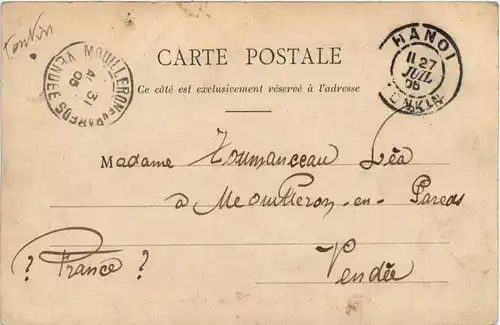 Tonkin
CARTE POSTALE
Ce côté est exclusivement réservé à l'adresse
MOUILLERON EN PAREDS
31
05
VENDÉE
HANOI
27
JUIL
05
TONKIN
Madame Léa
à Mouilleron-en-Pareds
Vendée
? France ?